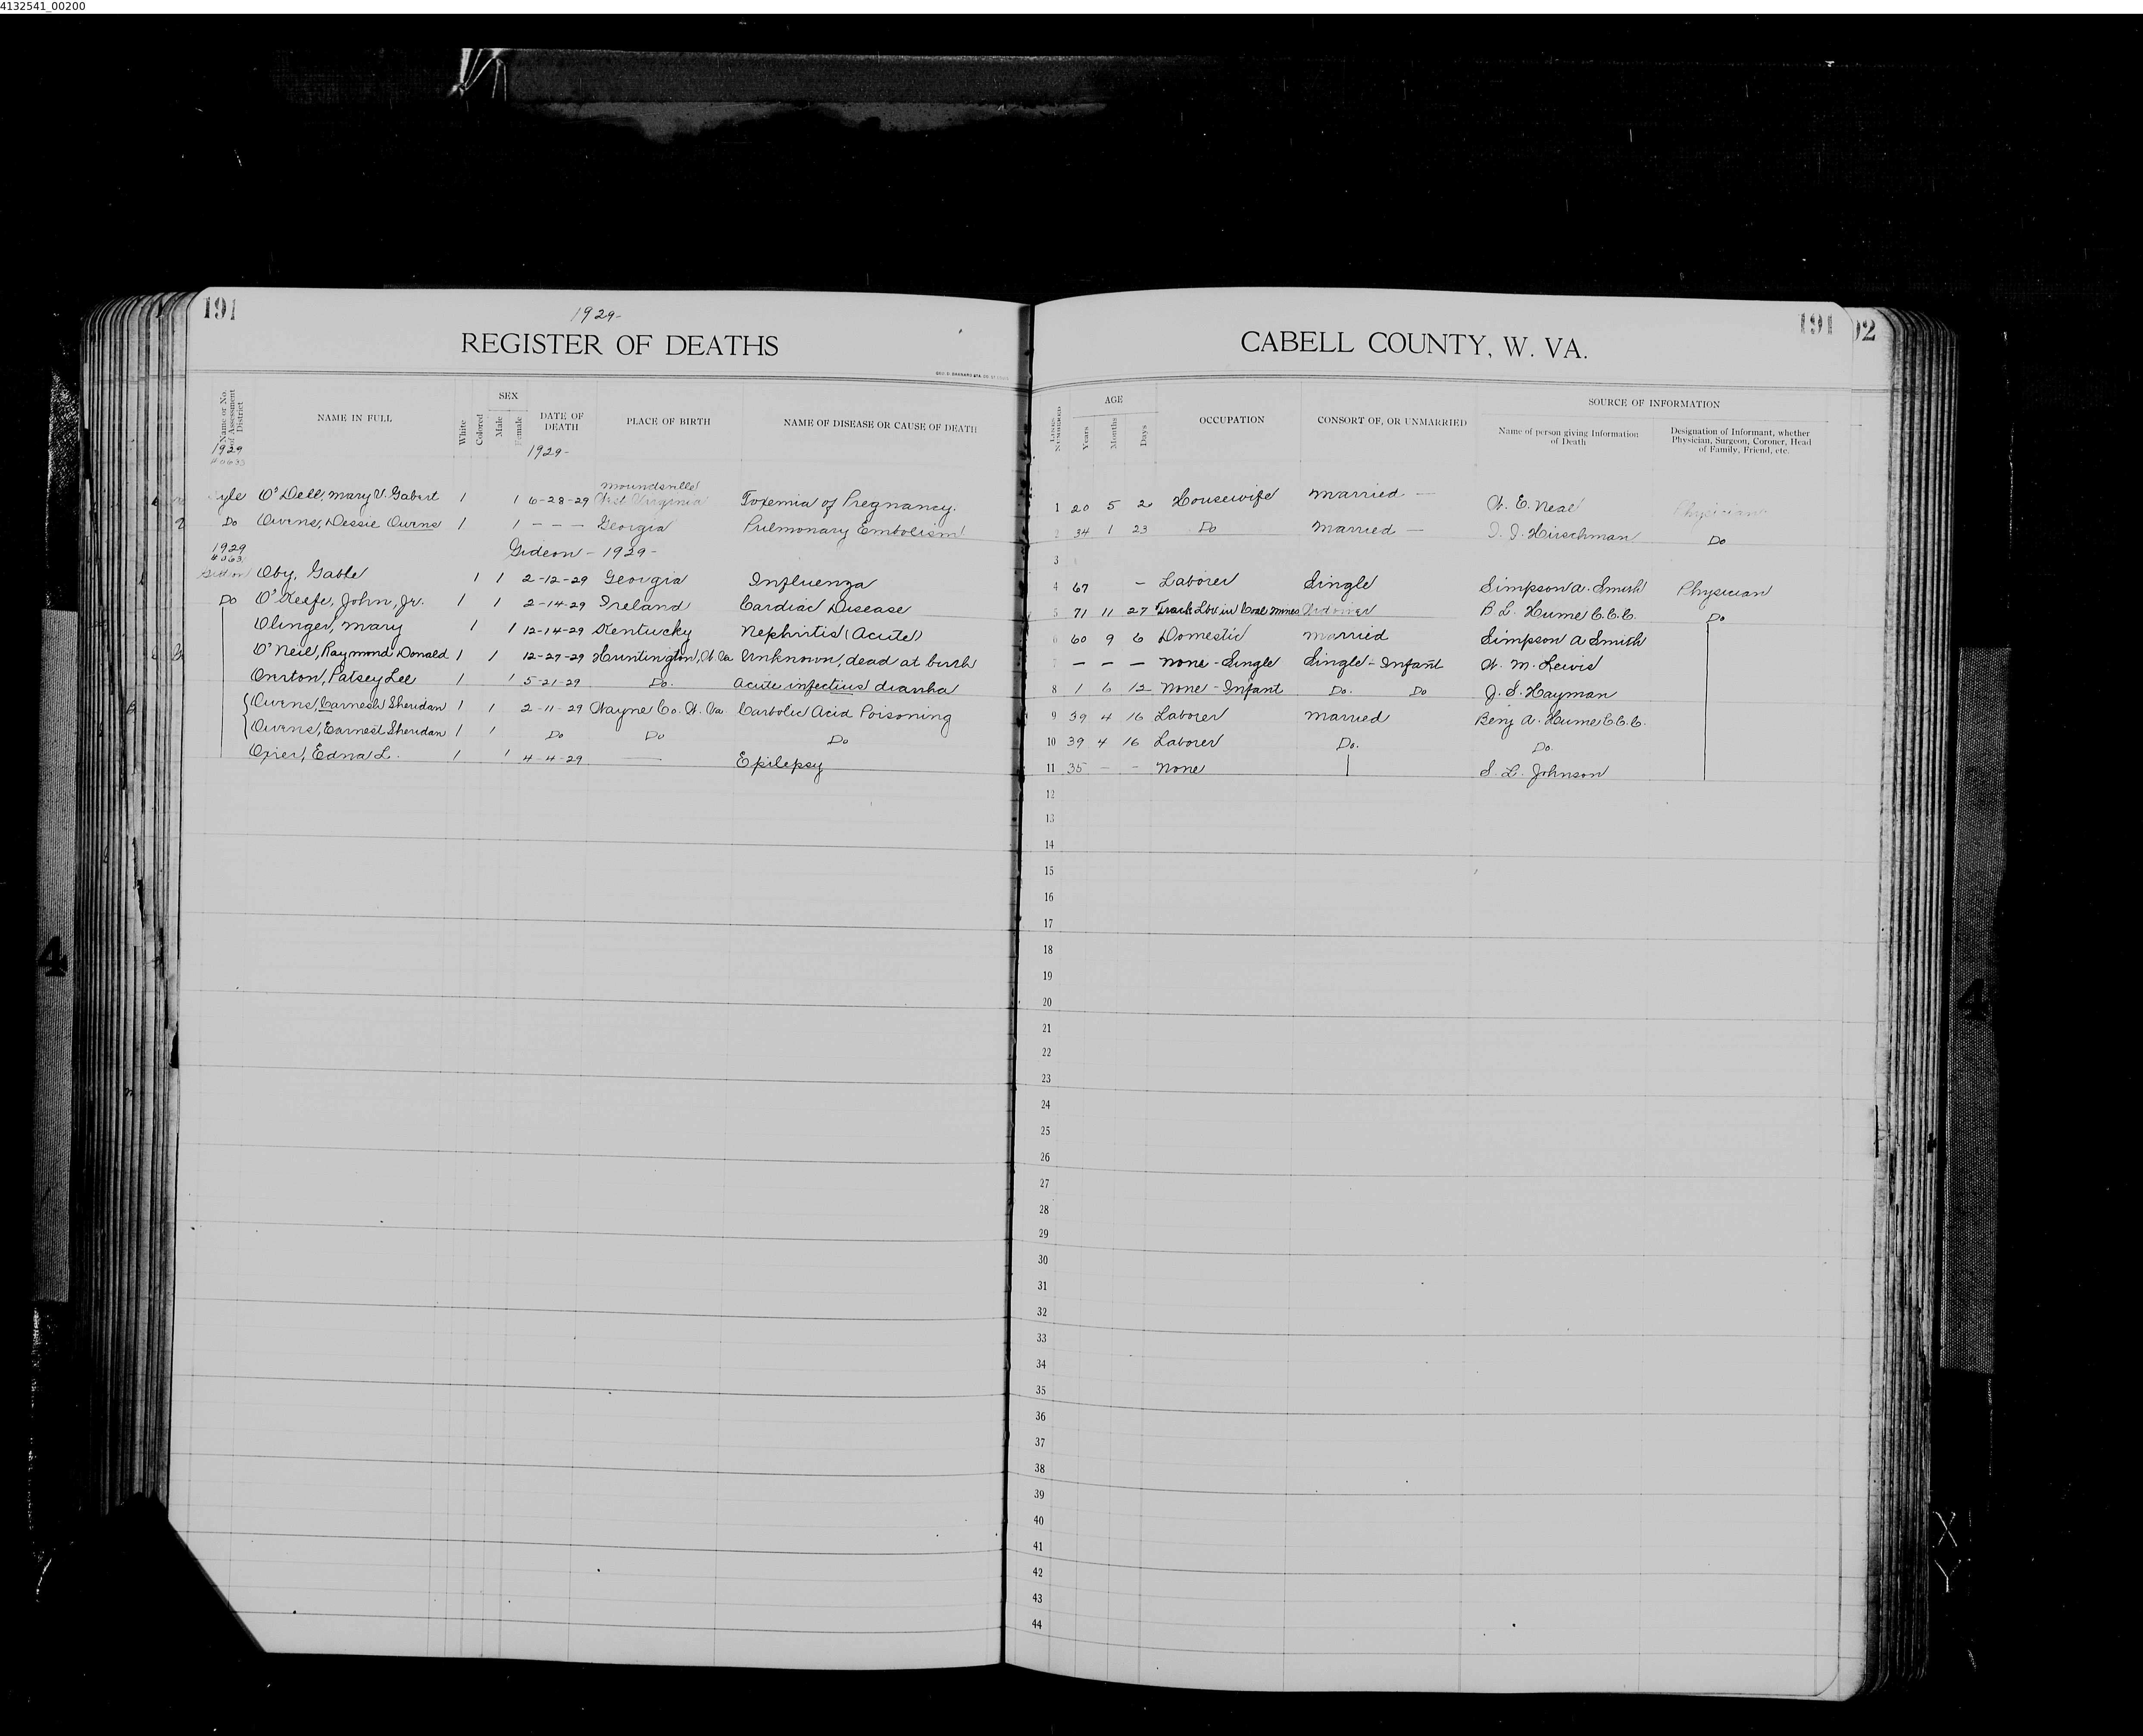 4132541_00200
191
1929-
REGISTER OF DEATHS
CABELL COUNTY, W. VA.
191
92
Name or No. of Assessment District
NAME IN FULL
White
Colored
SEX
Male
Female
DATE OF DEATH
PLACE OF BIRTH
NAME OF DISEASE OR CAUSE OF DEATH
LINES NUMBERED
AGE
Years
Months
Days
OCCUPATION
CONSORT OF, OR UNMARRIED
SOURCE OF INFORMATION
Name of person giving Information of Death
Designation of Informant, whether Physician, Surgeon, Coroner, Head of Family, Friend, etc.
1929
1929-
O'Dell, Mary V. Gabert 1 1 6-28-29 Moundsville West Virginia Toxemia of Pregnancy. 1 20 5 2 Housewife Married — W. E. Neal Physician
Do Owens, Dessie Owens 1 1 - - - Georgia Pulmonary Embolism 2 34 1 23 Do Married — I. I. Hirschman Do
1929 Gideon - 1929- 3
Gideon Oby, Gable 1 1 2-12-29 Georgia Influenza 4 67 - Laborer Single Simpson A. Smith Physician
Do O'Keefe, John, Jr. 1 1 2-14-29 Ireland Cardiac Disease 5 71 11 27 Track Lbr in Coal Mines Widower B. L. Hume C.C.C. Do
Olinger, Mary 1 1 12-14-29 Kentucky Nephritis (Acute) 6 60 9 6 Domestic Married Simpson A Smith
O'Neil, Raymond Donald 1 1 12-27-29 Huntington, W. Va Unknown, dead at birth 7 — — — None - Single Single - Infant W. M. Lewis
Overton, Patsey Lee 1 1 5-21-29 Do. Acute infectius diarrha 8 1 6 12 None - Infant Do. Do J. S. Hayman
Owens, Carnesh Sheridan 1 1 2-11-29 Wayne Co. W. Va Carbolic Acid Poisoning 9 39 4 16 Laborer Married Benj A. Hume C.C.C.
Owens, Earnest Sheridan 1 1 Do Do Do 10 39 4 16 Laborer Do. Do.
Oxier, Edna L. 1 1 4-4-29 — Epilepsy 11 35 - - None S. L. Johnson
12
13
14
15
16
17
18
19
20
21
22
23
24
25
26
27
28
29
30
31
32
33
34
35
36
37
38
39
40
41
42
43
44
4
4
X
Y